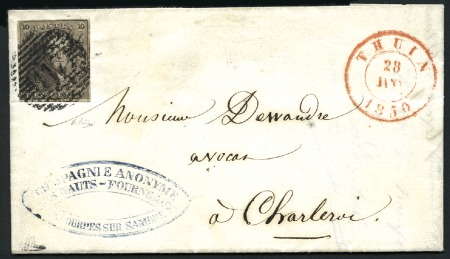 10 10
THUIN
28
JANV
1850
Monsieur Dewandre
avocat
à Charleroi
COMPAGNIE ANONYME
HAUTS-FOURNEAUX
SUR SAMBRE